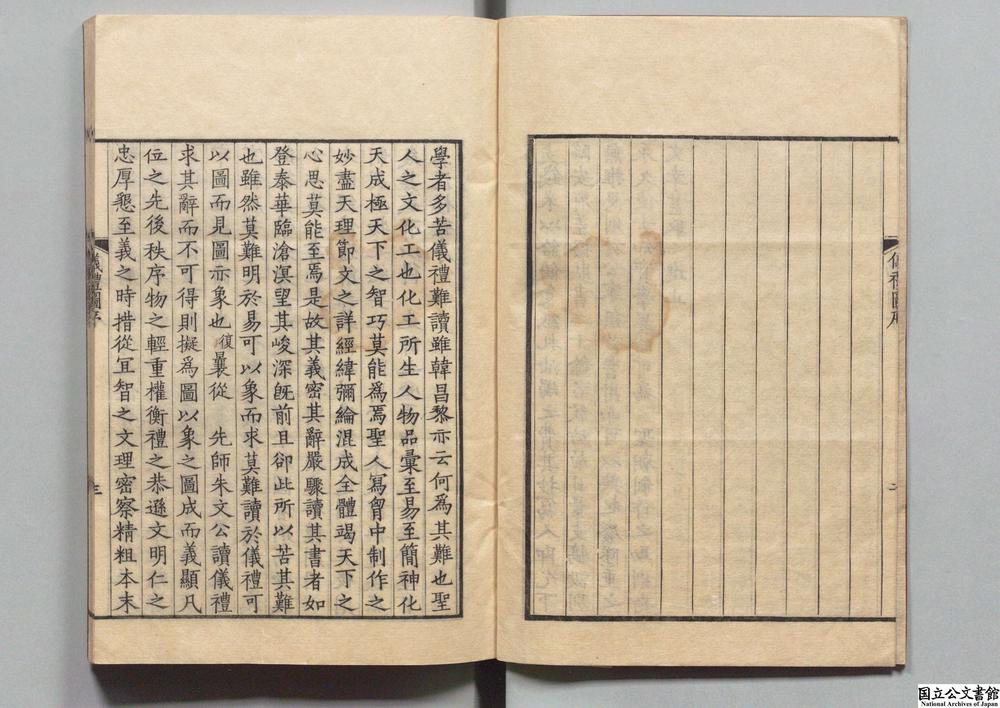 學者多苦儀禮難讀雖韓昌黎亦云何為其難也聖
人之文化工也化工所生人物品彙至易至簡神化
天成極天下之智巧莫能為焉聖人寫胷中制作之
妙盡天理節文之詳經緯彌綸混成全體竭天下之
心思莫能至焉是故其義密其辭嚴驟讀其書者如
登泰華臨滄溟望其峻深既前且卻此所以苦其難
也雖然莫難明於易可以象而求莫難讀於儀禮可
以圖而見圖亦象也復曩從 先師朱文公讀儀禮
求其辭而不可得則擬為圖以象之圖成而義顯凡
位之先後秩序物之輕重權衡禮之恭遜文明仁之
忠厚懇至義之時措從宜智之文理密察精粗本末
儀禮圖序
三
国立公文書館
National Archives of Japan